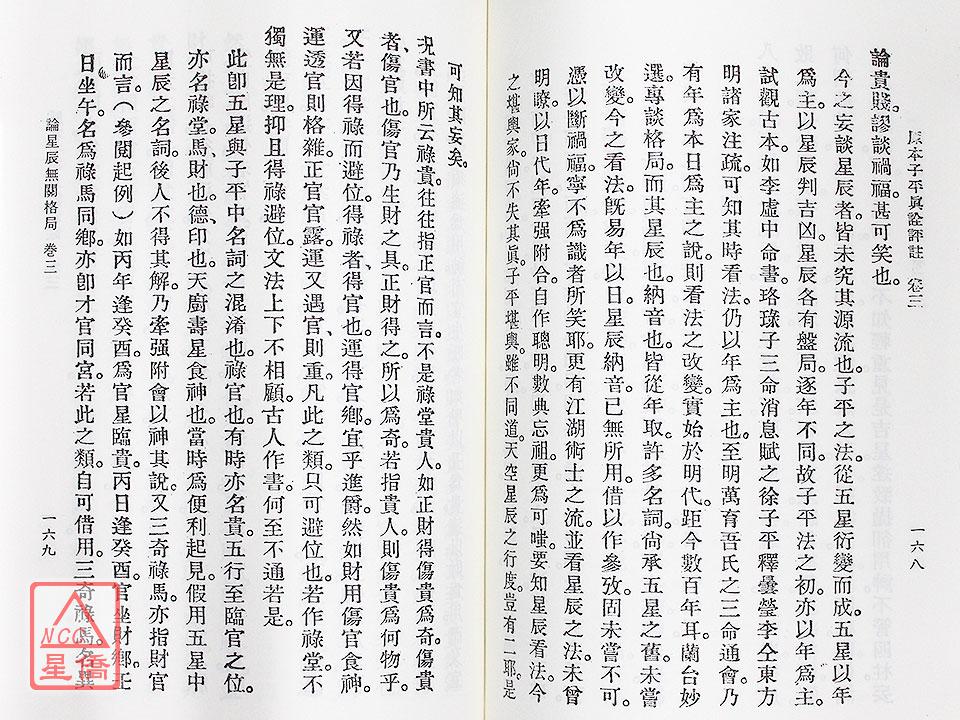 原本子平眞詮評註 卷三
一六八
論貴賤。謬談禍福。甚可笑也。
今之妄談星辰者。皆未究其源流也。子平之法。從五星衍變而成。五星以年
爲主。以星辰判吉凶。星辰各有盤局。逐年不同。故子平法之初。亦以年爲主。
試觀古本。如李虛中命書。珞琭子三命消息賦之徐子平釋曇瑩李仝東方
明諸家注疏。可知其時看法。仍以年爲主也。至明萬育吾氏之三命通會。乃
有年爲本日爲主之說。則看法之改變。實始於明代。距今數百年耳。蘭台妙
選。專談格局。而其星辰也。納音也。皆從年取。許多名詞。尙承五星之舊。未嘗
改變。今之看法。旣易年以日。星辰納音。已無所用。借以作參攷。固未嘗不可。
憑以斷禍福。寧不爲識者所笑耶。更有江湖術士之流。並看星辰之法。未曾
明瞭。以日代年。牽强附合。自作聰明。數典忘祖。更爲可嗤。要知星辰看法。今
之堪輿家尙不失其眞。子平堪輿。雖不同道。天空星辰之行度。豈有二耶。是
可知其妄矣。
况書中所云祿貴。往往指正官而言。不是祿堂貴人。如正財得傷貴爲奇。傷貴
者、傷官也。傷官乃生財之具。正財得之。所以爲奇。若指貴人。則傷貴爲何物乎。
又若因得祿而避位。得祿者、得官也。運得官鄉。宜乎進爵。然如財用傷官食神。
運透官則格雜。正官官露。運又遇官、則重。凡此之類。只可避位也。若作祿堂。不
獨無是理。抑且得祿避位。文法上下不相顧。古人作書。何至不通若是。
此卽五星與子平中名詞之混淆也。祿官也。有時亦名貴。五行至臨官之位。
亦名祿堂。馬財也。德、印也。天廚壽星食神也。當時爲便利起見。假用五星中
星辰之名詞。後人不得其解。乃牽强附會以神其說。又三奇祿馬。亦指財官
而言。(參閱起例)如丙年逢癸酉。爲官星臨貴。丙日逢癸酉。官坐財鄉。壬
日坐午。名爲祿馬同鄉。亦卽才官同宮。若此之類。自可借用。三奇祿馬。名異
論星辰無關格局 卷三
一六九
NCC
星僑